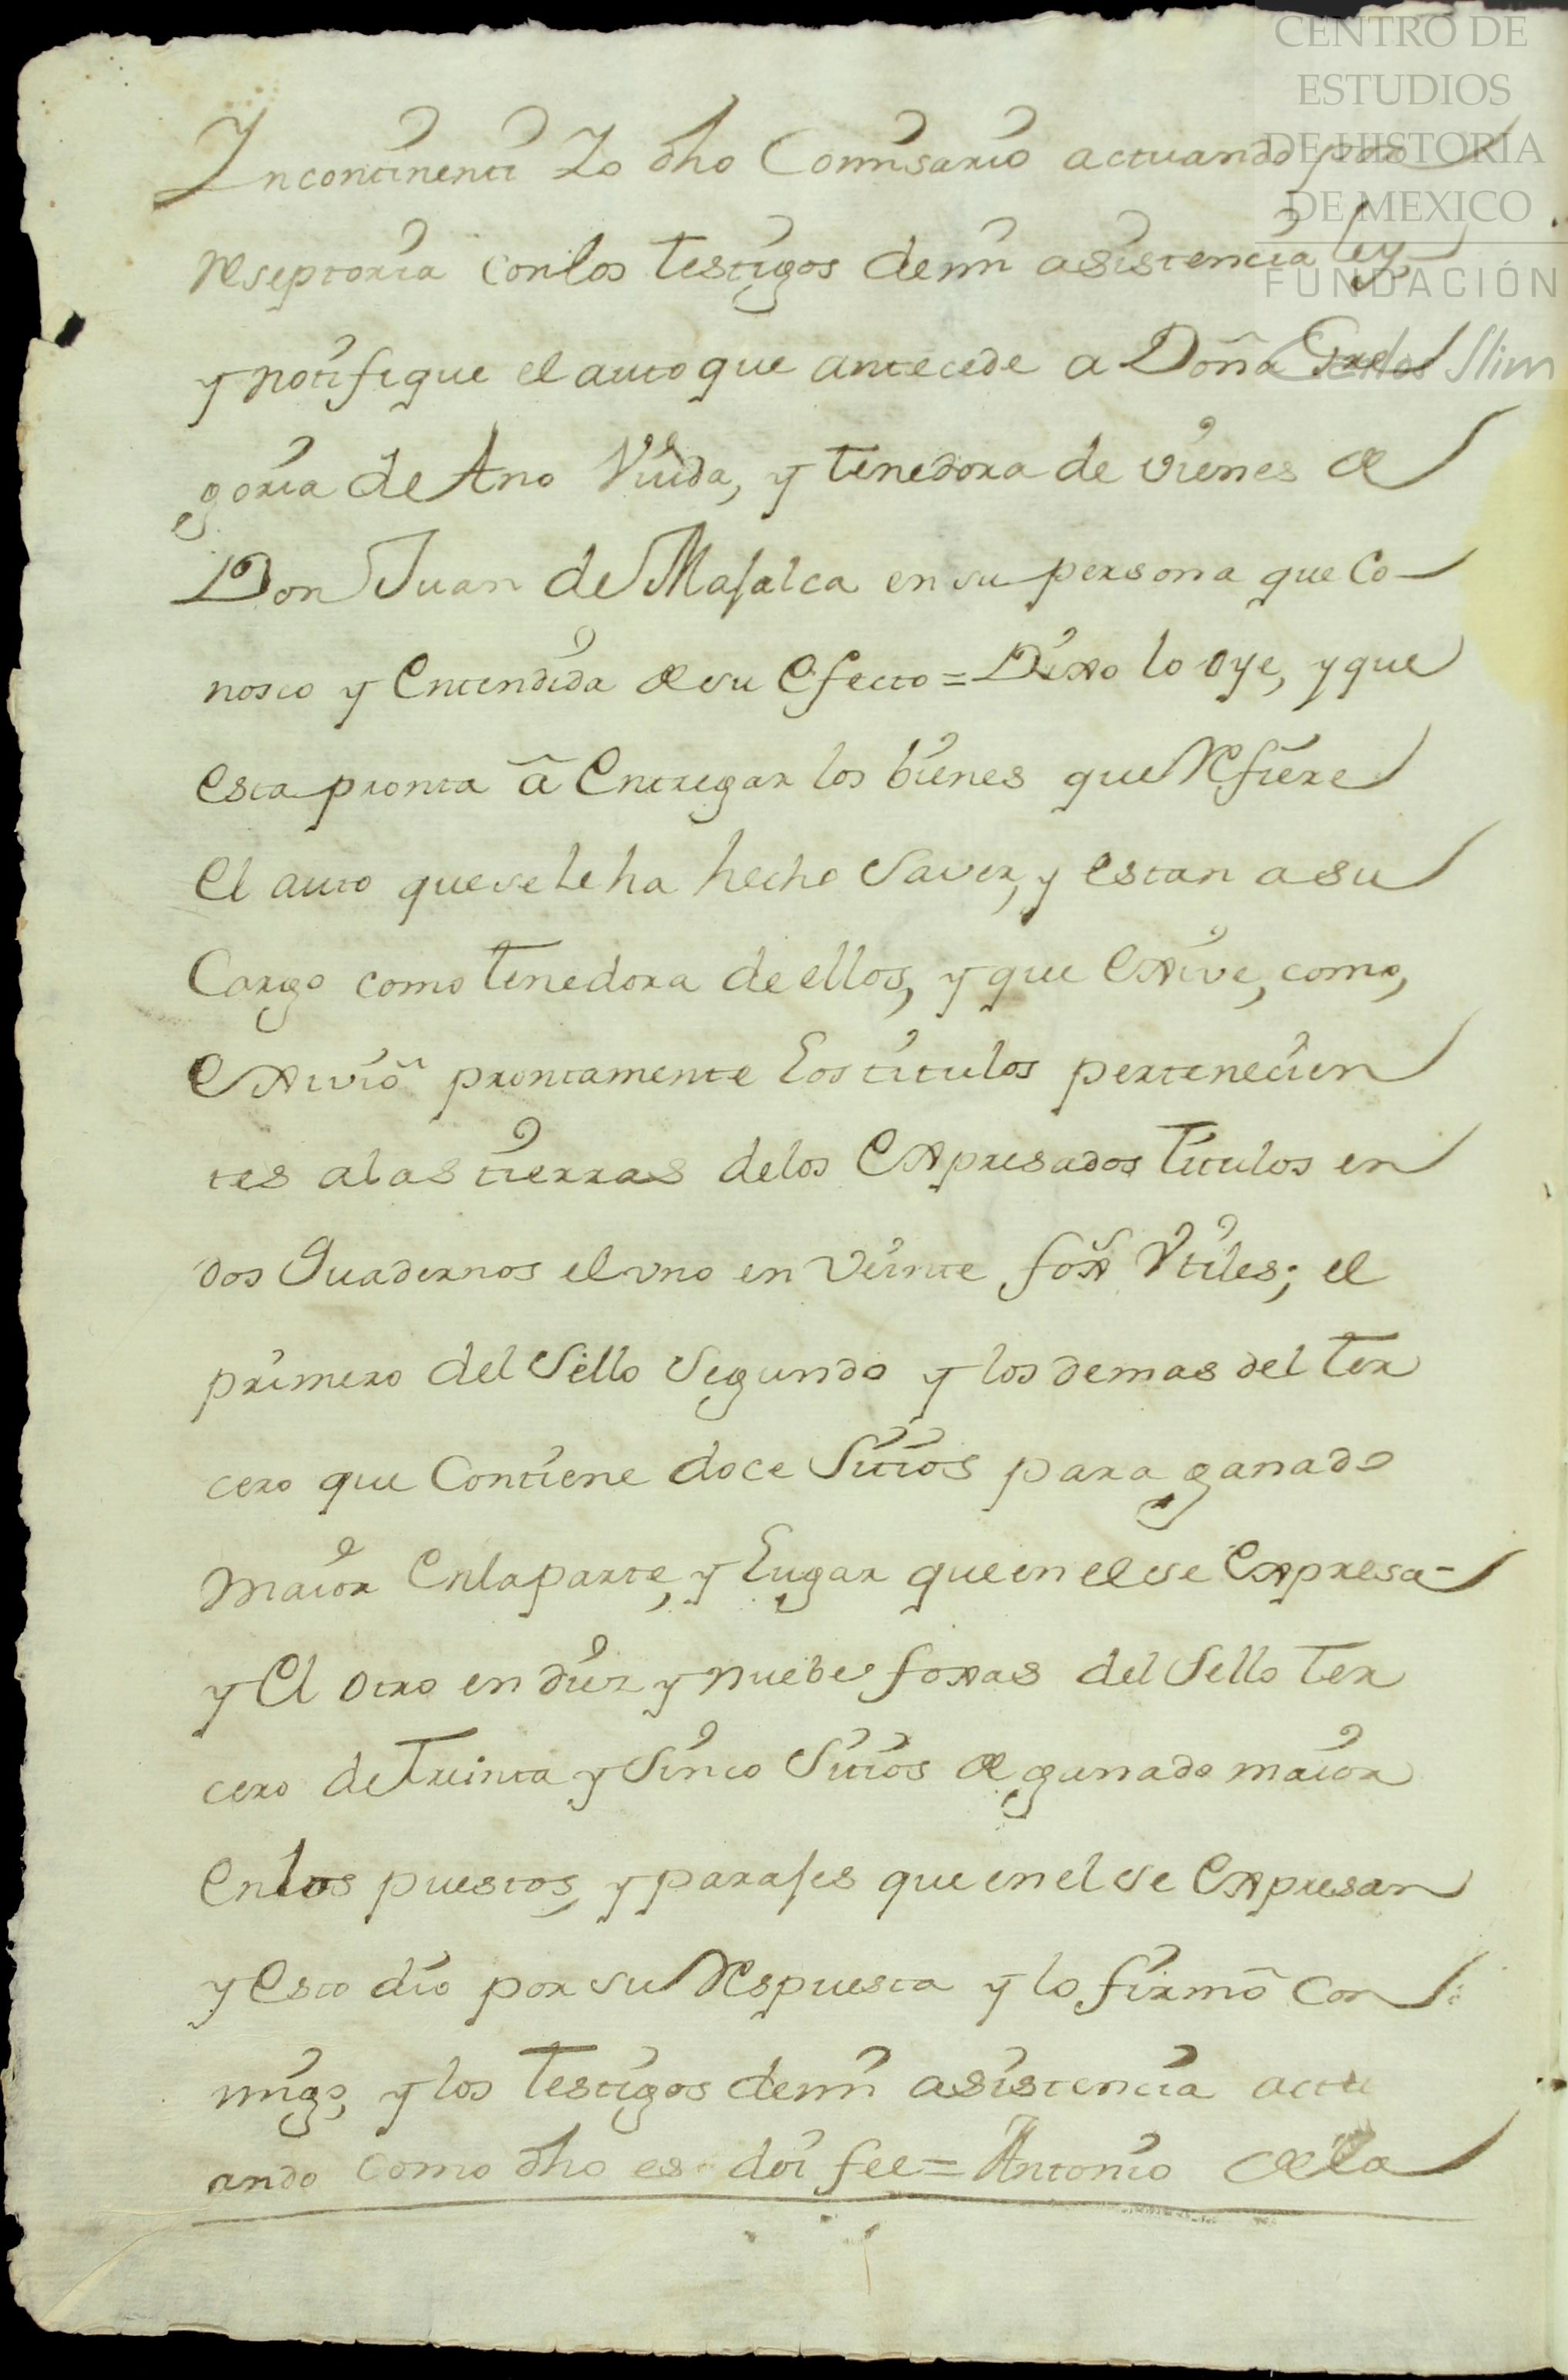 CENTRO DE
ESTUDIOS
DE HISTORIA
DE MEXICO
FUNDACIÓN
Carlos Slim
Incontinenti Yo dho Comisario actuando por
reseptoria con los testigos de mi asistencia ley
y notifique el auto que antecede a Doña Gre
goria de Ano Viuda, y tenedora de vienes de
Don Juan de Masalca en su persona que co-
nosco y entendida de su efecto = Dixo lo oye, y que
esta pronta â entregar los bienes que refiere
el auto que se le ha hecho saver, y estan a su
cargo como tenedora de ellos, y que exive, como,
exivió prontamente los titulos pertenecien
tes a las tierras de los expresados titulos en
dos quadernos el vno en veinte foxs vtiles; el
primero del sello segundo y los demas del ter
cero que contiene doce sitios para ganado
maior en la parte, y lugar que en el se expresa-
y el otro en diez y nuebe foxas del sello ter
cero de treinta y sinco sitios de ganado maior
en los puestos, y parajes que en el se expresan
y esto dio por su respuesta y lo firmó con
migo, y los testigos de mi asistencia actu
ando como dho es doi fee = Antonio de la